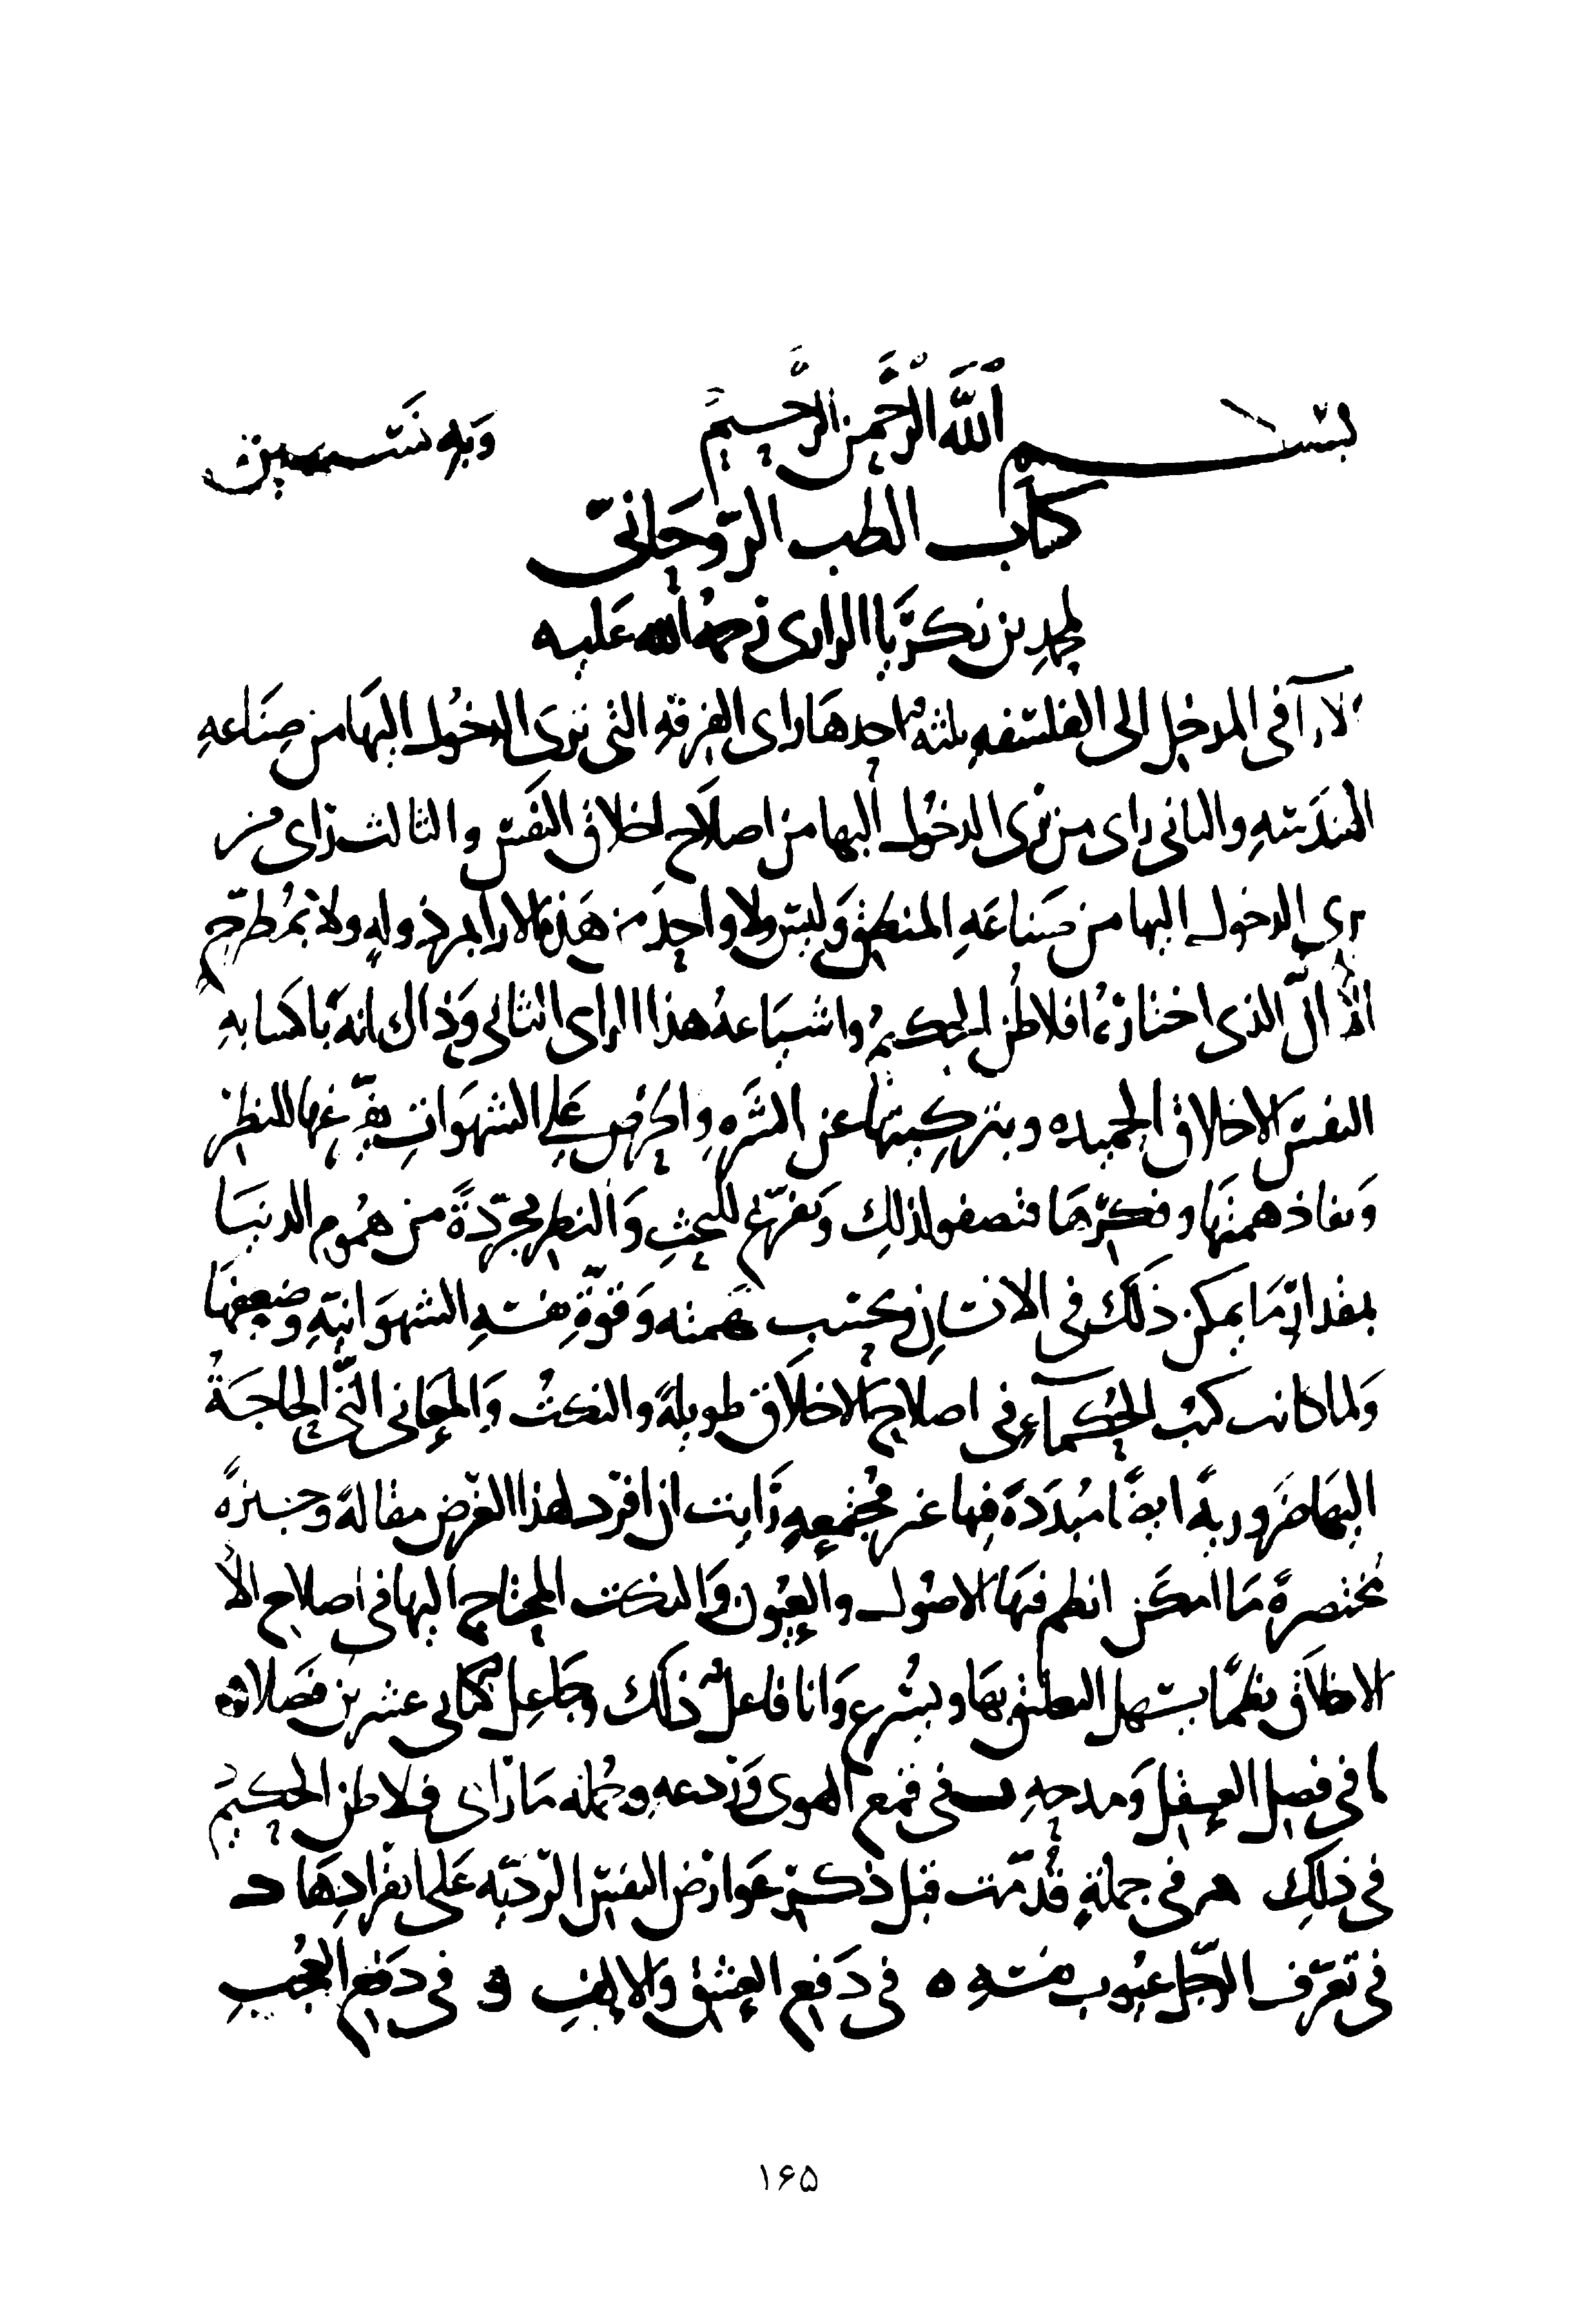 بسم الله الرحمن الرحيم وبه نستعين
كتاب الطب الروحاني
لمحمد بن زكريا الرازي رحمة الله عليه
الآرآ في المدخل الى الفلسفه ثلثة احدها راى الفرقه التي ترى الدخول اليها من صناعه
الهندسه والثاني راى من يرى الدخول اليها من اصلاح اخلاق النفس والثالث راى من
يرى الدخول اليها من صناعه المنطق وليس ولا واحد من هذه الارا بمرذوله ولا بمطرح
الا ان الذي اختاره افلاطن الحكيم واشياعه هذا الراى الثاني وذاك انه باكسابه
النفس الاخلاق الحميده وبتزكيتها عن الشره والحرص على الشهوات يفرغها للنظر
ونفاذ همتها وفكرها فتصفو لذلك وتفرغ للبحث والنظر مجردة من هموم الدنيا
بمقدار ما يمكن ذلك في الانسان وبحسب همته وقوة نفسه الشهوانيه وضعفها
ولما كانت كتب الحكماء في اصلاح الاخلاق طويلة والنكت والمعاني التي الحاجة
اليها ضرورية ايضا مبددة فيها غير مجتمعه رايت ان افرد لهذا الغرض مقالة وجيزة
مختصرة ما امكن انظم فيها الاصول والعيون والنكت المحتاج اليها في اصلاح الا
الاخلاق نظما يسهل التعلق بها ويسرع وانا فاعل ذلك وجاعل كتابي عشرين فصلا
ا في فضل العقل ومدحه ب في قمع الهوى وردعه وجملة ما راى فلاطن الحكيم
في ذلك ج في جملة قدمت قبل ذكر عوارض النفس الرديه على انفرادها د
في تعرف الرجل عيوب نفسه ه في دفع العشق والالف و في دفع العجب
۱۶۵